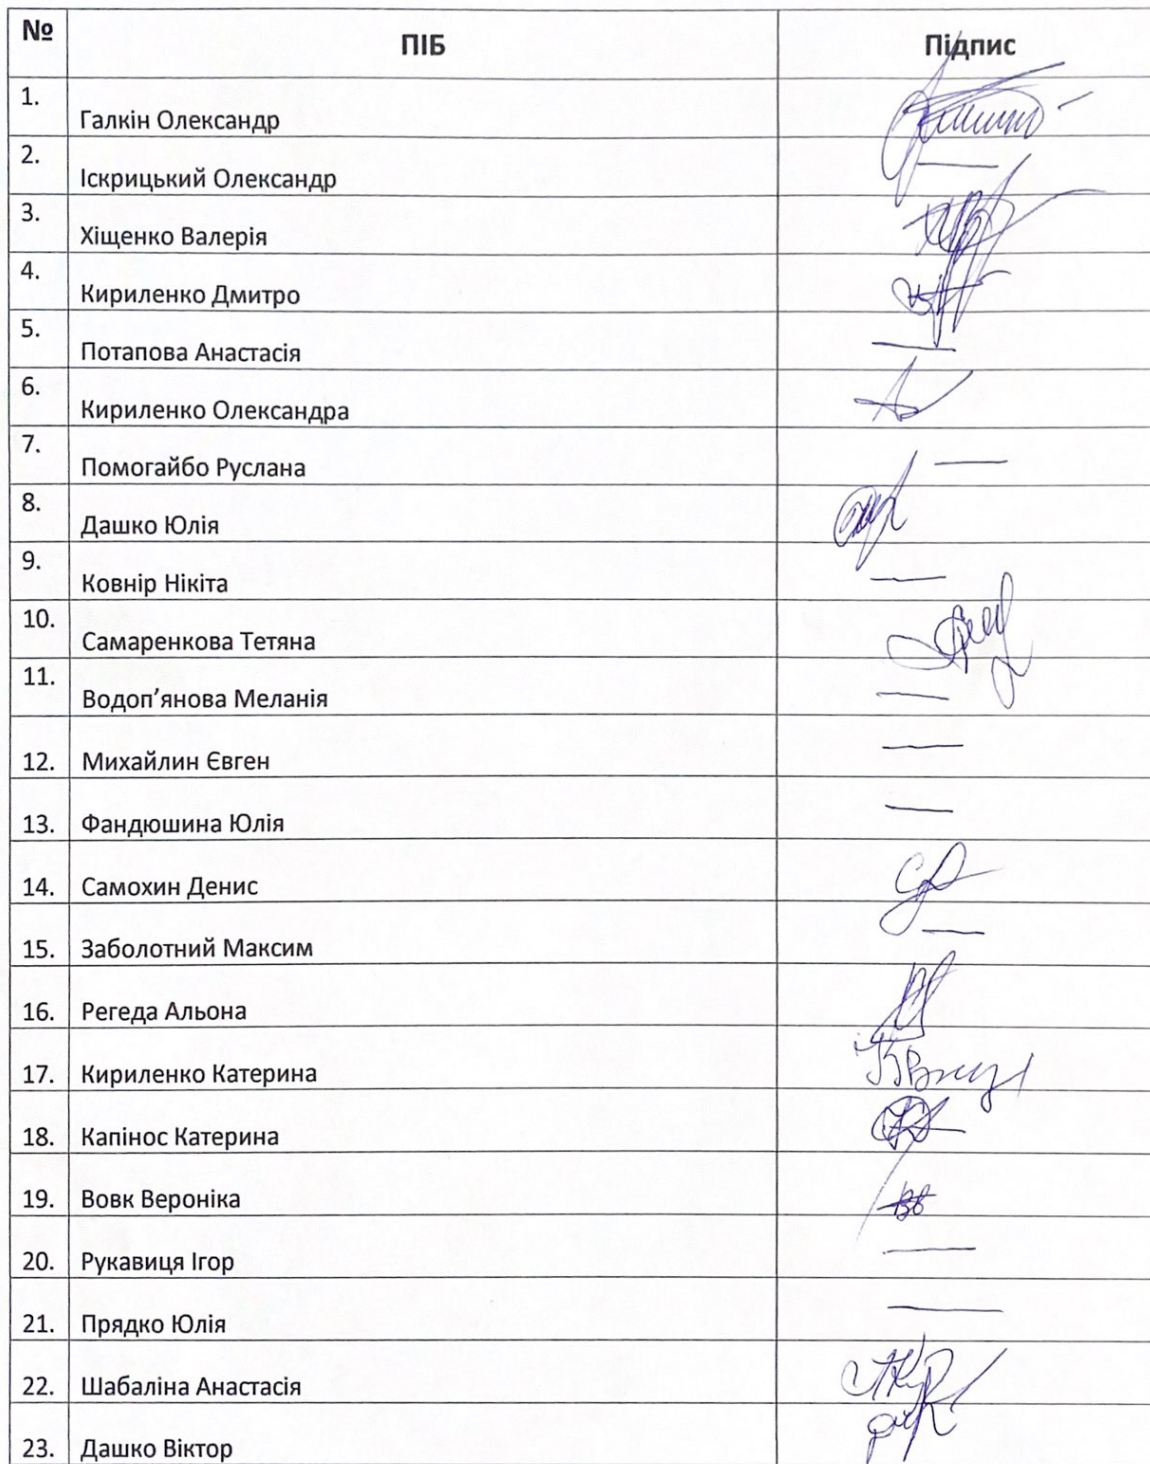 № ПІБ Підпис
1. Галкін Олександр
2. Іскрицький Олександр —
3. Хіщенко Валерія
4. Кириленко Дмитро
5. Потапова Анастасія —
6. Кириленко Олександра
7. Помогайбо Руслана —
8. Дашко Юлія
9. Ковнір Нікіта —
10. Самаренкова Тетяна
11. Водоп’янова Меланія —
12. Михайлин Євген —
13. Фандюшина Юлія —
14. Самохин Денис
15. Заболотний Максим —
16. Регеда Альона
17. Кириленко Катерина
18. Капінос Катерина
19. Вовк Вероніка
20. Рукавиця Ігор —
21. Прядко Юлія —
22. Шабаліна Анастасія
23. Дашко Віктор